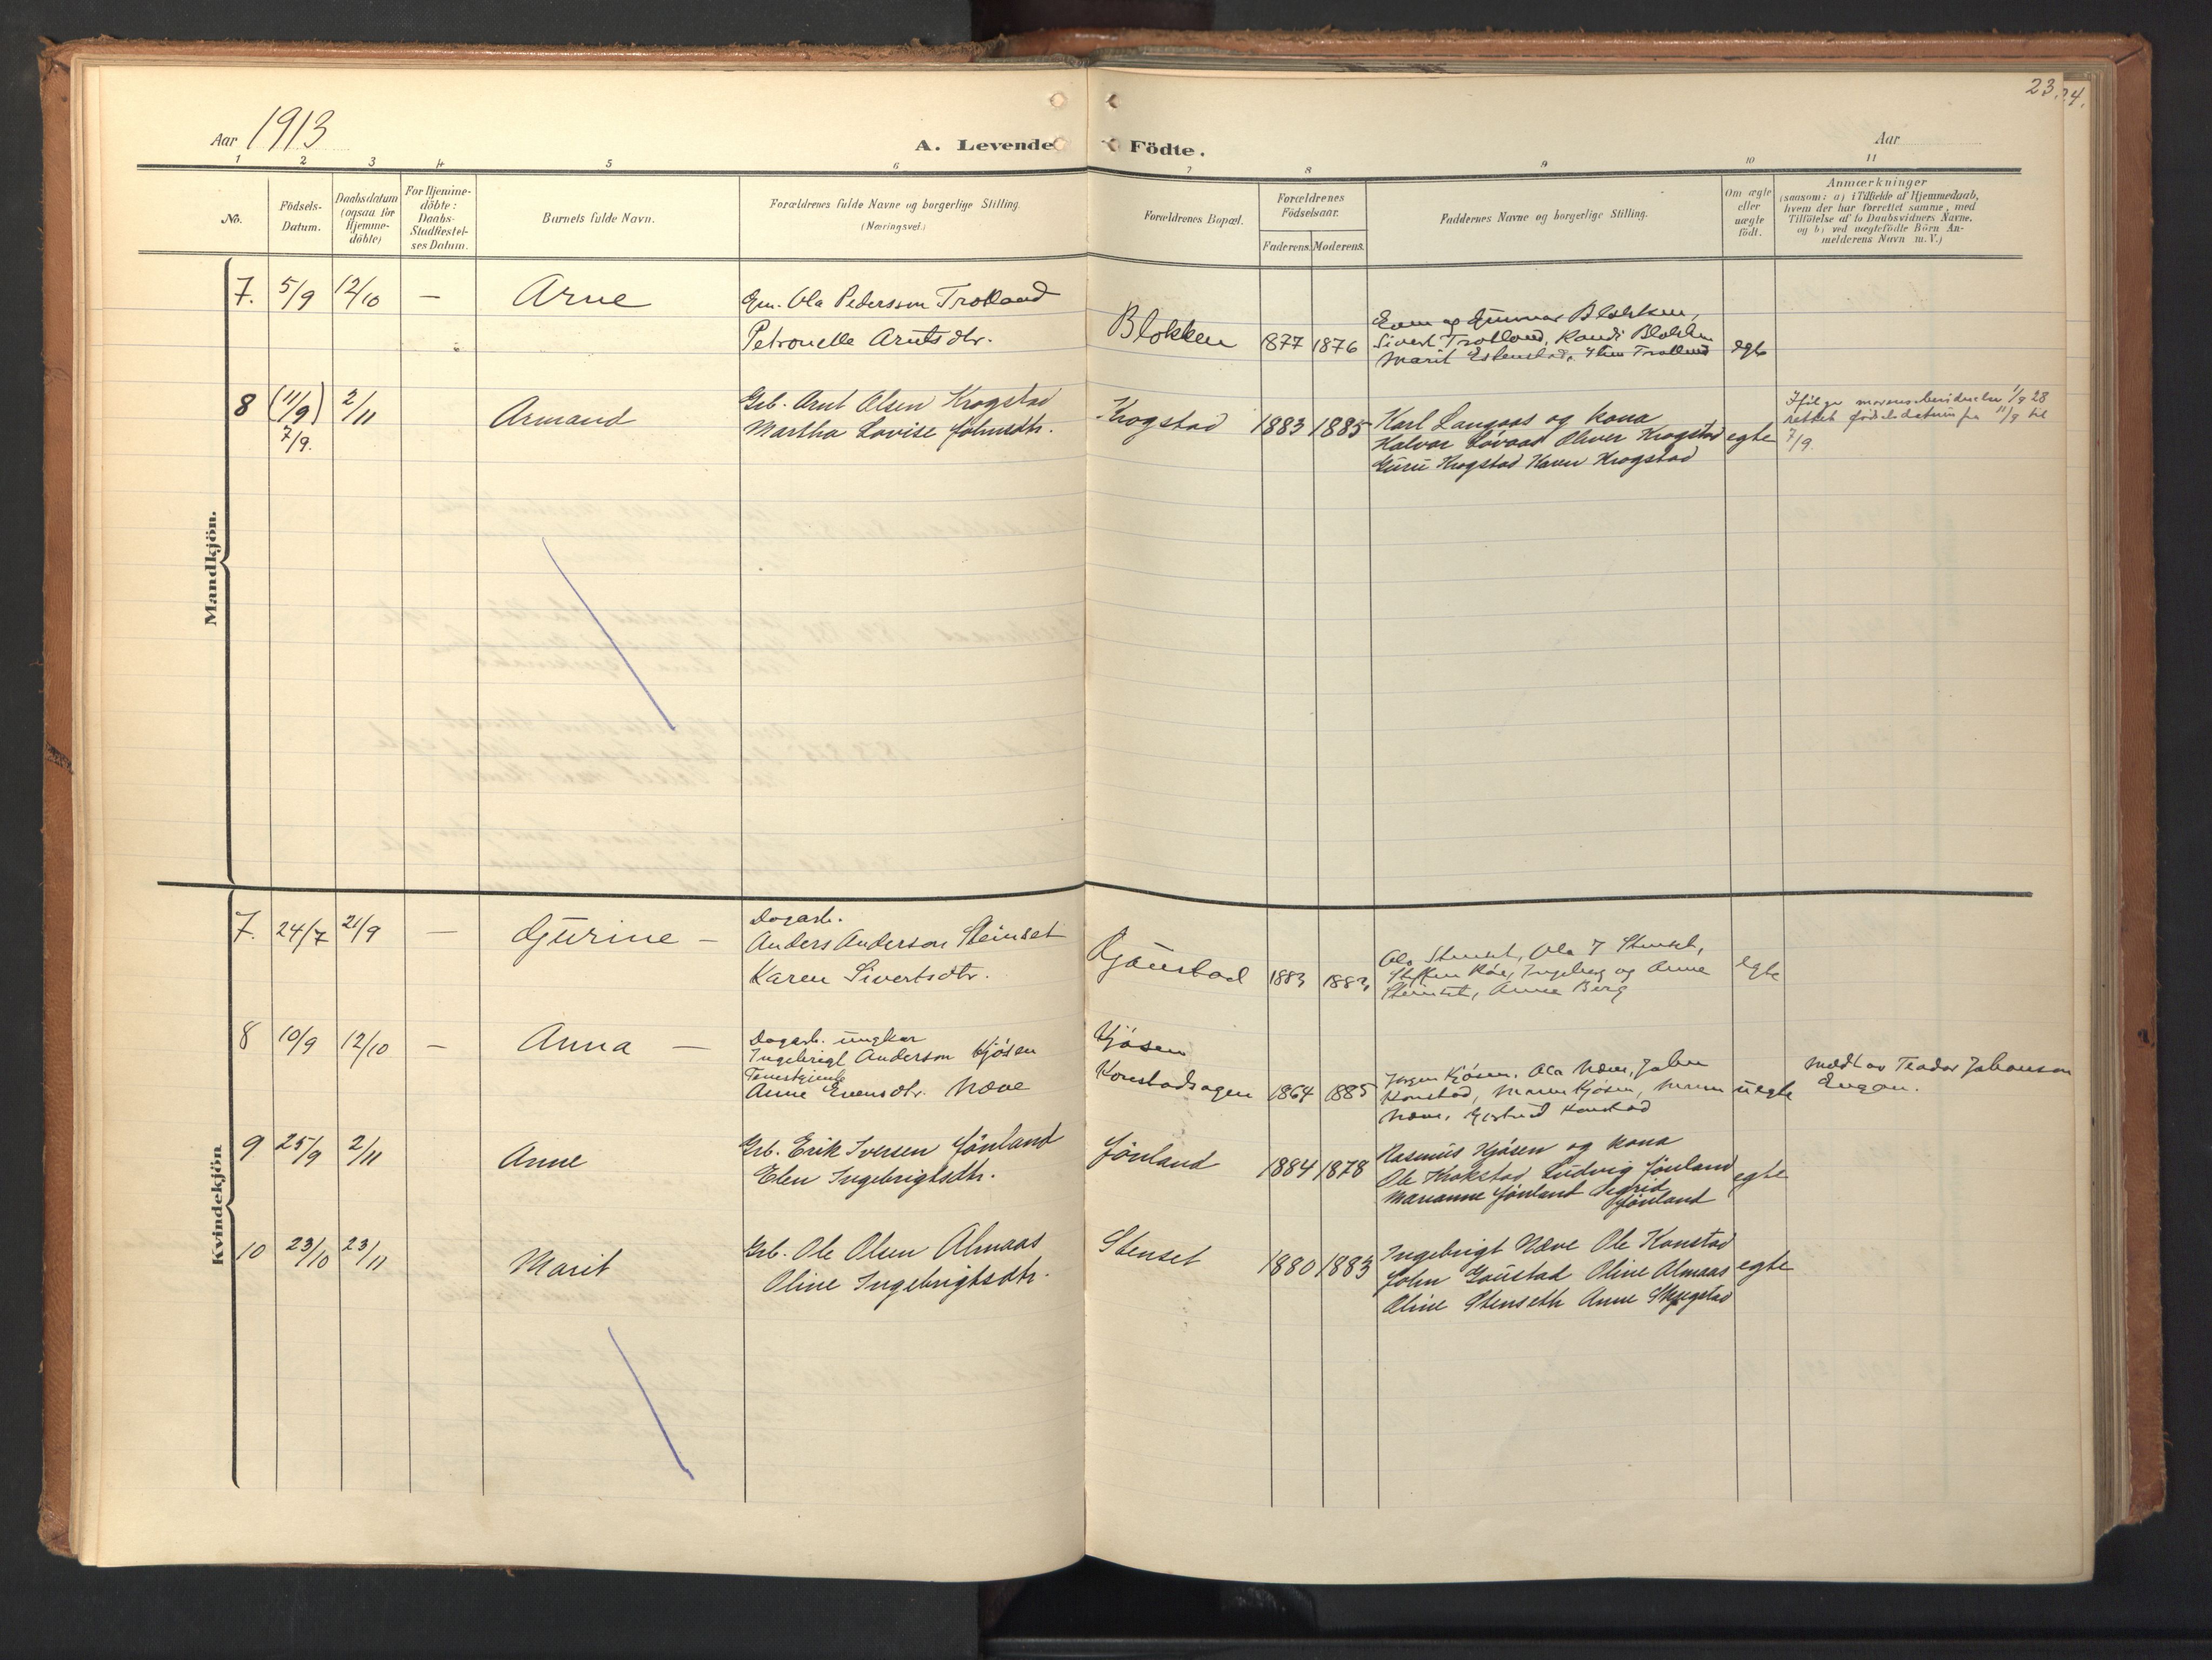 23. 24.
Aar 1913
A. Levende Födte.
Aar
1 2 3 4 5 6 7 8 9 10 11
No.
Födsels-
Datum.
Daabsdatum
(ogsaa for
Hjemme-
döbte)
For Hjemme-
döbte:
Daabs-
Stadfæstel-
ses Datum.
Barnets fulde Navn.
Forældrenes fulde Navne og borgerlige Stilling.
(Næringsvei.)
Forældrenes Bopæl.
Forældrenes
Födselsaar.
Faderens. Moderens.
Faddernes Navne og borgerlige Stilling.
Om ægte
eller
uægte
födt.
Anmærkninger
(saasom: a) i Tilfælde af Hjemmedaab,
hvem der har forrettet samme, med
Tilföielse af to Daabsvidners Navne,
og b) ved uægtefödte Börn An-
melderens Navn m. V.)
Mandkjön.
7. 5/9 12/10 — Arne
Gm. Ola Pedersson Trotland
Petronelle Arntsdtr.
Blokken 1877 1876
Even og Gunnar Blokken,
Sivert Trotland, Randi Blokken
Marit Estenstad, Trotland
egte
8 (11/9) 2/11 Armand
7/9.
Grb. Arnt Olsen Krogstad
Martha Lovise Johnsdtr.
Krogstad 1883 1885
Karl Langaas og kona
Halvar Lövaas Oliver Krogstad
Guru Krogstad Karen Krogstad
egte
Ifölge morens 1/9 28
rettet födselsdatum fra 11/9 til
7/9.
Kvindekjön
7. 24/7 21/9 — Gjurine —
Dagarb.
Anders Anderson Steinset
Karen Sivertsdtr.
Gjöustad 1883 1883
Ola Stenset, Ola J Stenset,
Steffen Ingeborg og Anne
Steinset, Anne Berg
egte
8 10/9 12/10 — Anna —
Dagarb. ungkar
Ingebrigt Anderson Kjösen
Tenestjente
Anne Evensdtr. Næve
Kjösen
Konstadsagen 1864 1885
Jörgen Kjösen, Ola Næve, John
Konstad, Maren Kjösen,
Næve, Gjertrud Konstad
uegte
Meldt av Teodor Johanson
Engan.
9 25/9 2/11 Anne
Grb. Erik Iversen Jönland
Elen Ingebrigtsdtr.
Jönland 1884 1878
Rasmus Kjösen og kona
Ole Krokstad Ludvig Jönland
Marianne Jönland Segrid
Jönland
egte
10 23/10 23/11 Marit
Grb. Ole Olsen Almaas
Oline Ingebrigtsdtr.
Stenset 1880 1883
Ingebrigt Næve Ole Konstad
John Gaustad Oline Almaas
Oline Stenseth Anne Skjegstad
egte